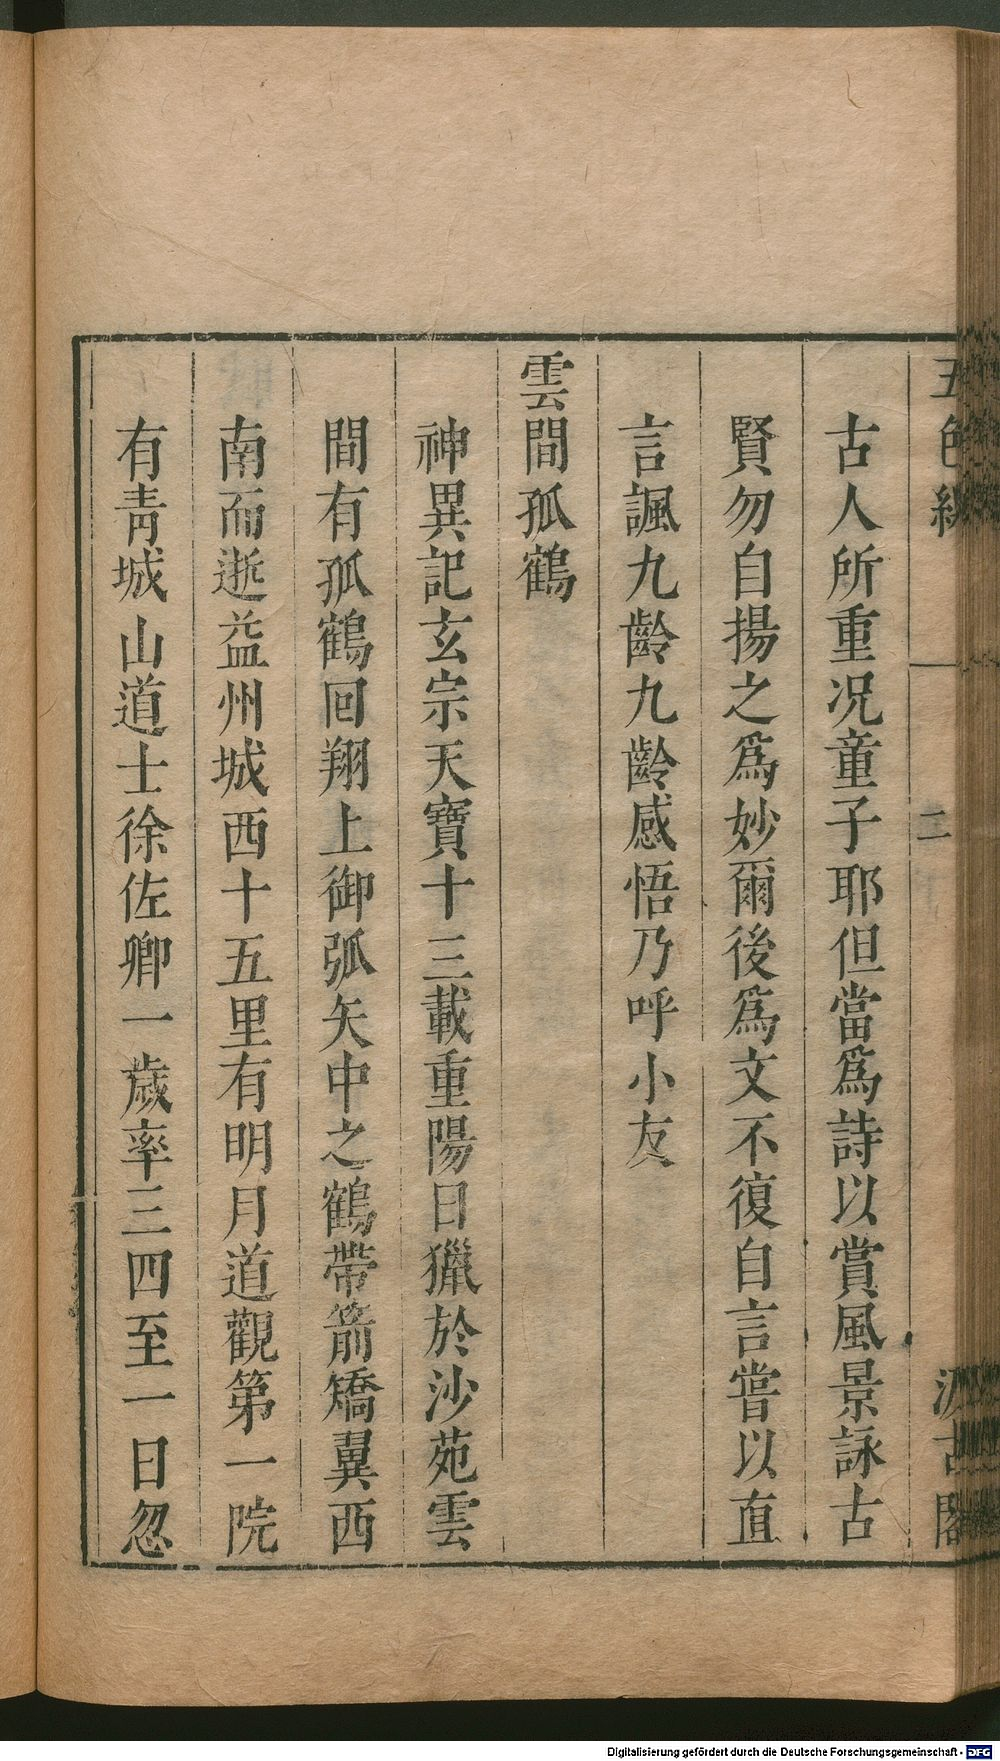 五色線
二
汲古閣
古人所重况童子耶但當爲詩以賞風景詠古
賢勿自揚之爲妙爾後爲文不復自言嘗以直
言諷九齡九齡感悟乃呼小友
雲間孤鶴
神異記玄宗天寶十三載重陽日獵於沙苑雲
間有孤鶴回翔上御弧矢中之鶴帶箭矯翼西
南而逝益州城西十五里有明月道觀第一院
有靑城山道士徐佐卿一歲率三四至一日忽
Digitalisierung gefördert durch die Deutsche Forschungsgemeinschaft - DFG